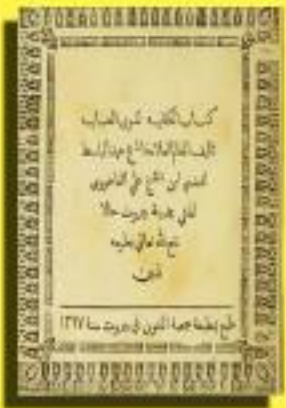 كتاب الكفاية لذوي العناية
تأليف العالم العلامة الشيخ عبد الباسط
ابن الشيخ علي الفاخوري
مفتي مدينة بيروت حالا
الله تعالى بعلومه
امين
طبع بمطبعة جمعية الفنون في بيروت سنة ١٢٩٧